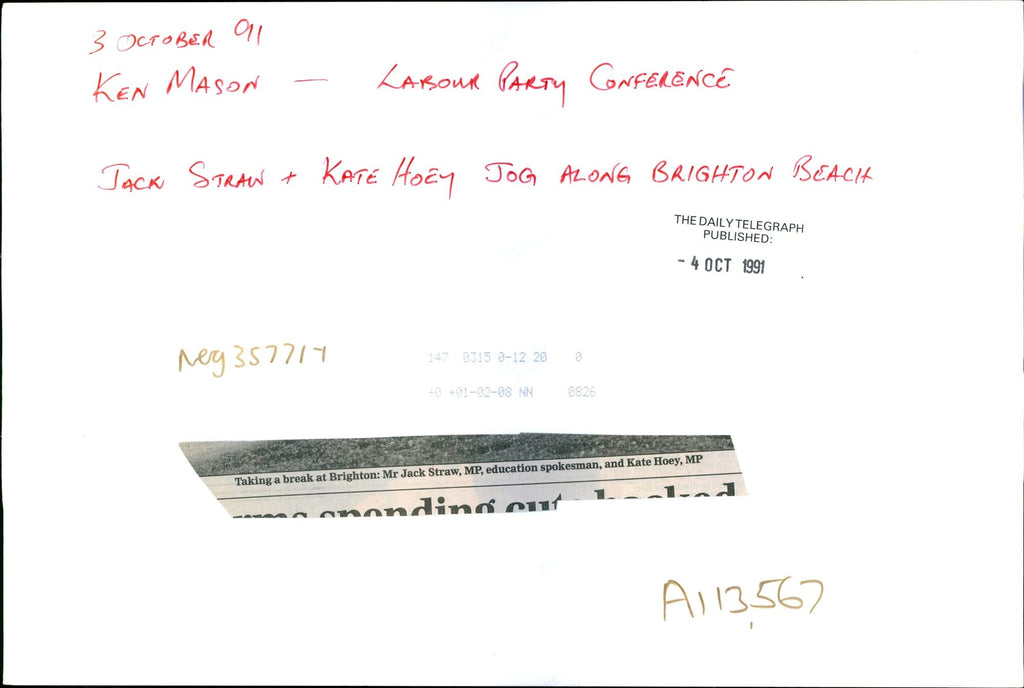 3 OCTOBER 91
KEN MASON — LABOUR PARTY CONFERENCE
JACK STRAW + KATE HOEY JOG ALONG BRIGHTON BEACH
THE DAILY TELEGRAPH
PUBLISHED:
- 4 OCT 1991
Neg 357717
147 0315 0-12 20 0
+0 +01-02-08 NN 0826
Taking a break at Brighton: Mr Jack Straw, MP, education spokesman, and Kate Hoey, MP
spending cuts backed
A113,567